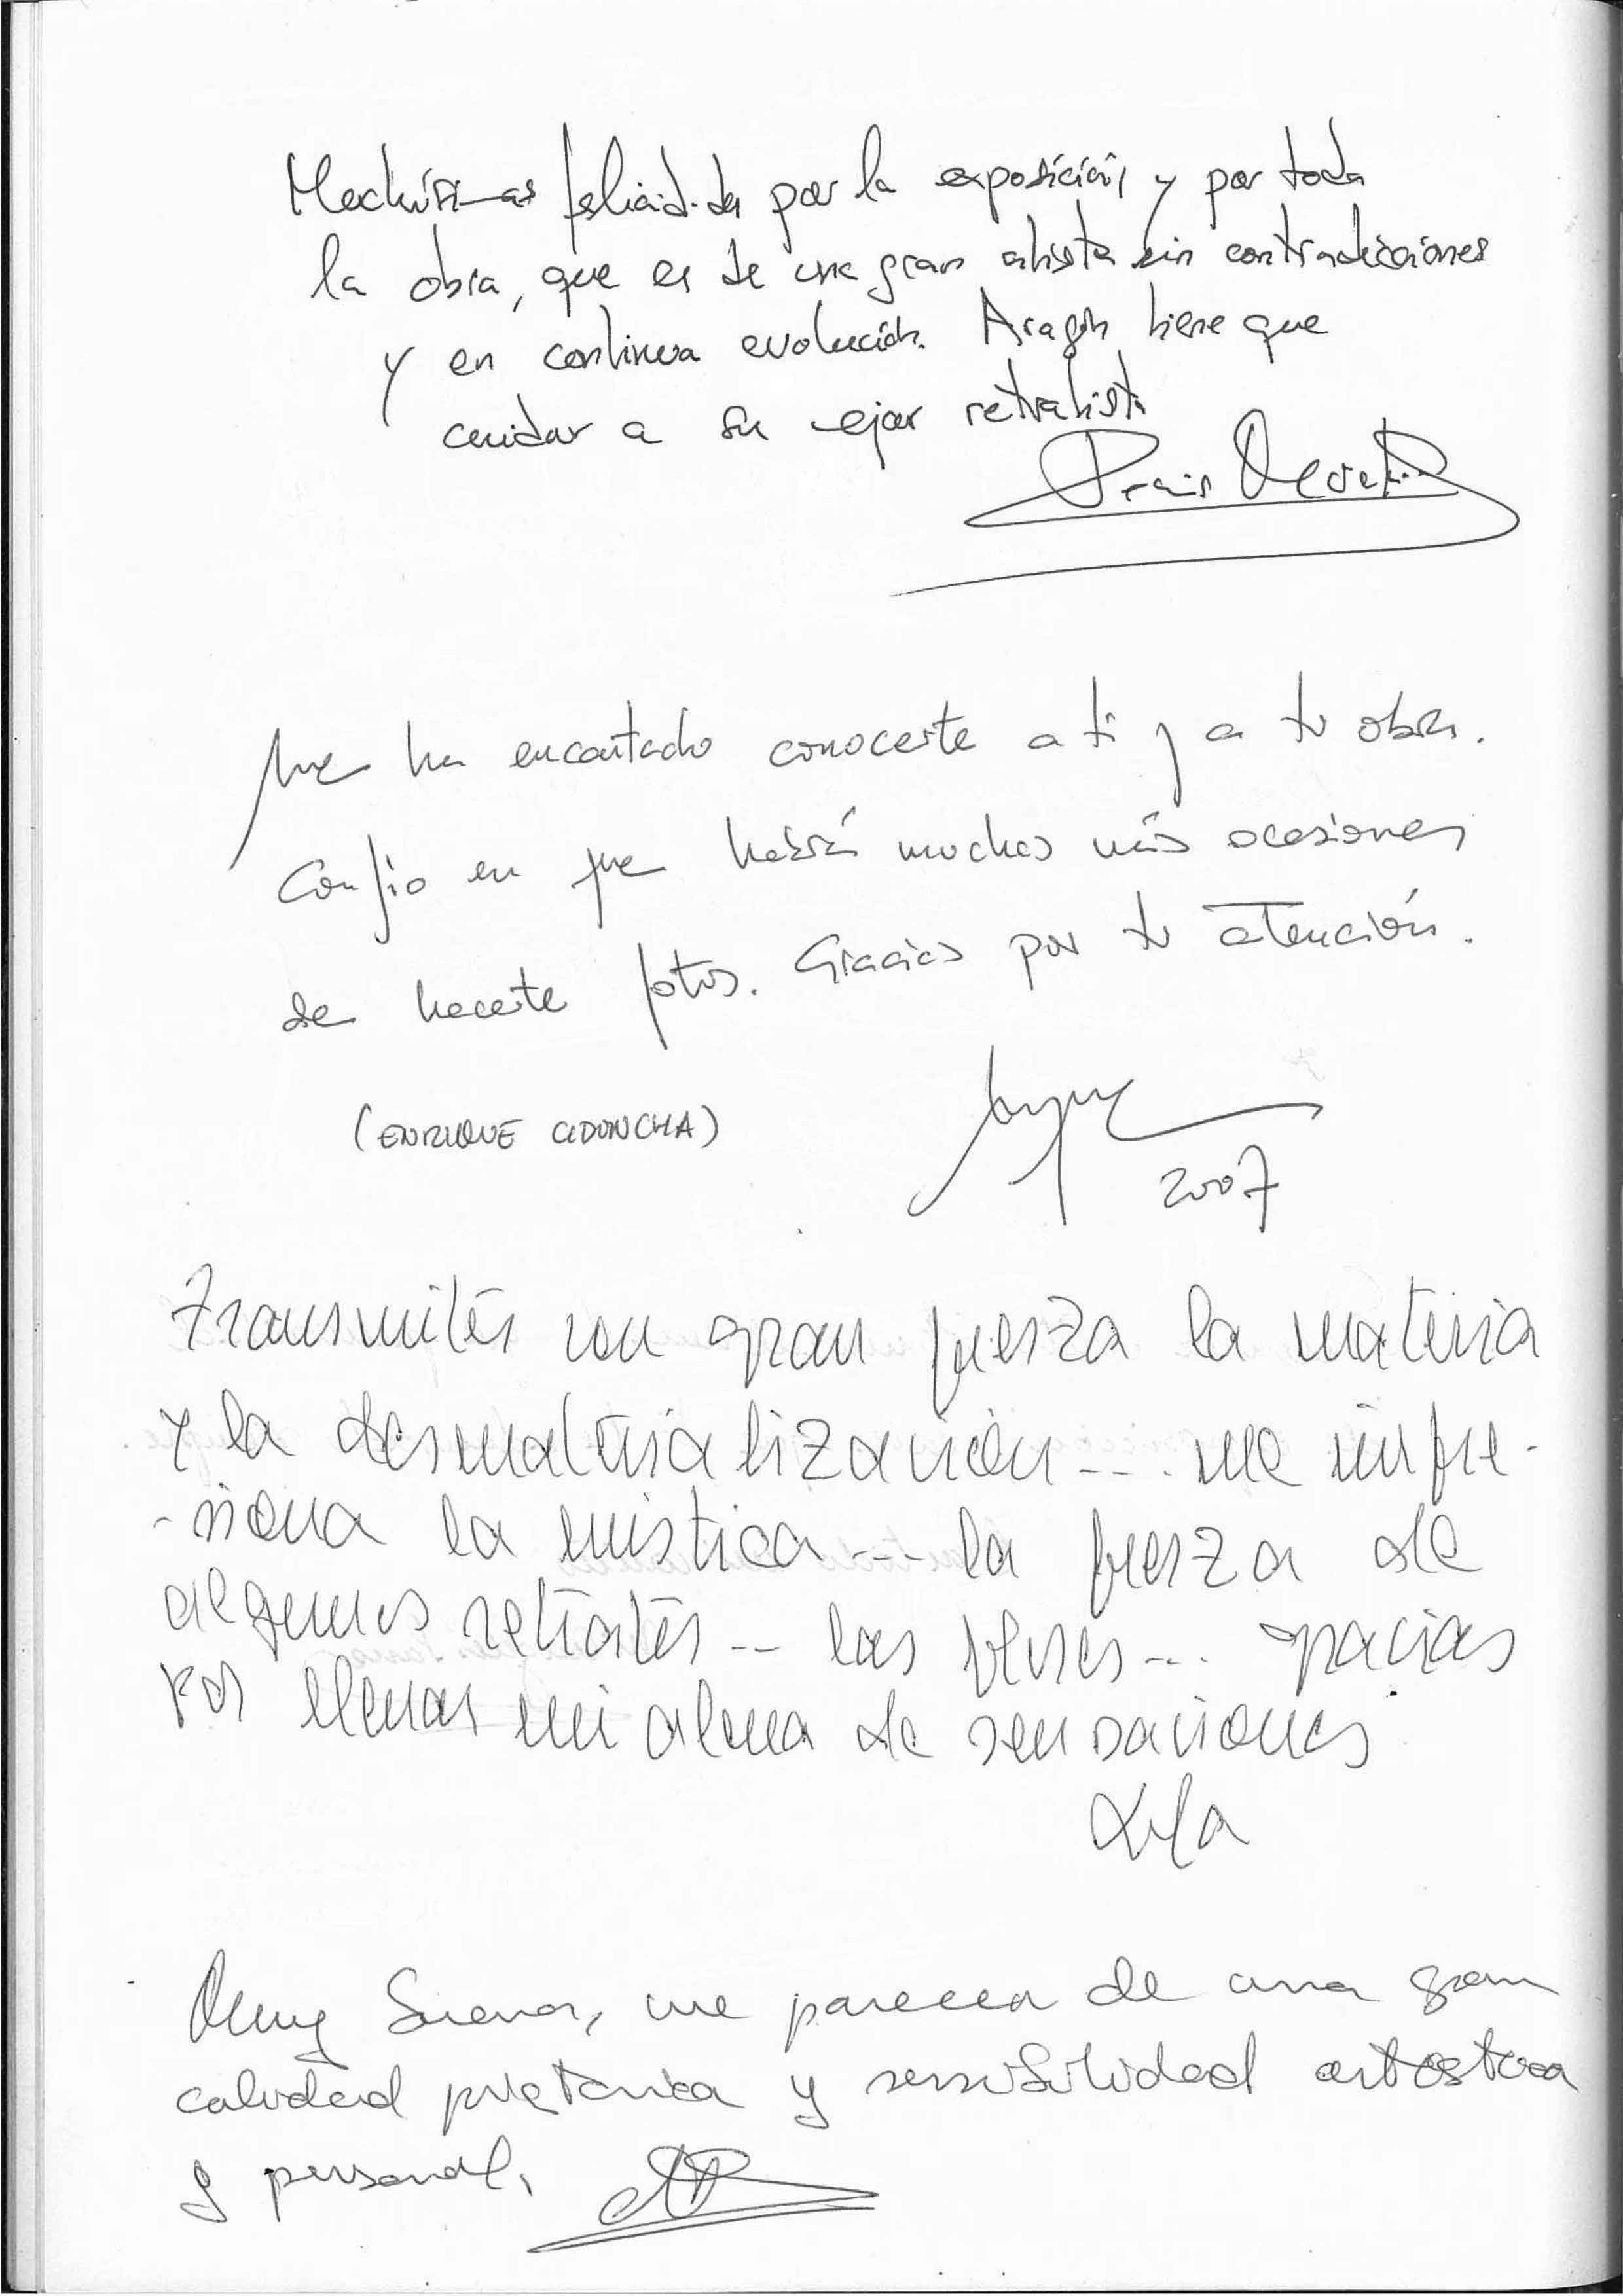 Muchísimas felicidades por la exposición, y por toda
la obra, que es de una gran artista sin contradicciones
y en continua evolución. Aragón tiene que
cuidar a su mejor retratista
Me ha encantado conocerte a ti y a tu obra.
Confío en que habrá muchas más ocasiones
de hacerte fotos. Gracias por tu atención.
(ENRIQUE CIDONCHA)
2007
Transmites con gran fuerza la materia
y la desmaterialización.... me impre-
-siona la mística.... la fuerza de
algunos retratos... las series.... gracias
por llenar mi alma de sensaciones
Muy buena, me parecen de una gran
calidad pictórica y sensibilidad artística
y personal.